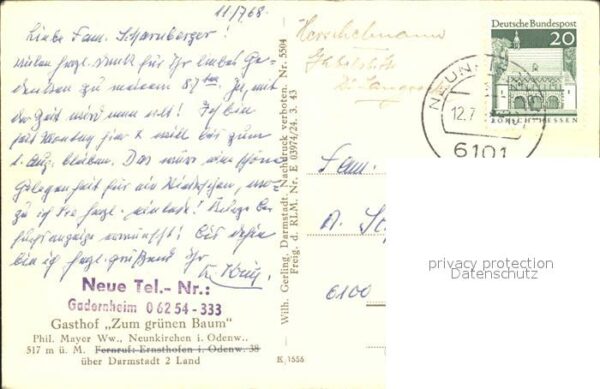 11/7 68.
Liebe Fam. Scharnberger!
vielen herzl. Dank für Ihr liebes Ge-
denken zu meinem 87ten. Ja, mit
der Zeit wird man alt! Ich bin
seit Montag hier & will bis zum
1. Aug. bleiben. Das wäre eine schöne
Gelegenheit für ein Wiedersehen, wo-
zu ich Sie herzl. einlade!
bin ich herzl. grüßend Ihr
Neue Tel.- Nr.:
Gadernheim 0 62 54 - 333
Gasthof „Zum grünen Baum"
Phil. Mayer Ww., Neunkirchen i. Odenw..
517 m ü. M. Fernruf: Ernsthofen i. Odenw. 38
über Darmstadt 2 Land
Wilh. Gerling, Darmstadt. Nachdruck verboten. Nr. 5504
Freig. d. RLM. Nr. E 03974/24. 3. 43
K 1556
Deutsche Bundespost
20
LORSCH·HESSEN
NEUN
12.7
6101
Fam.
6100
privacy protection
Datenschutz